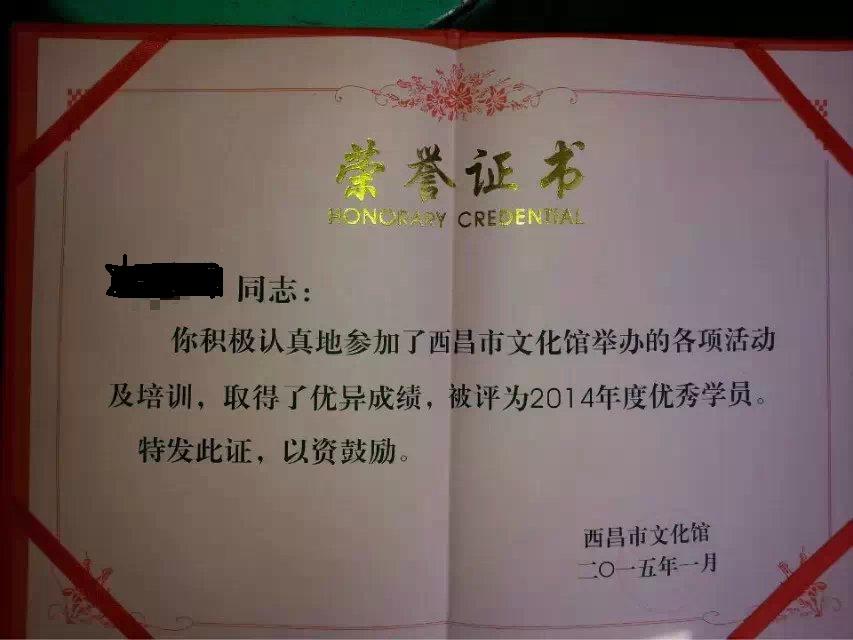 荣誉证书
HONORARY CREDENTIAL
同志：
你积极认真地参加了西昌市文化馆举办的各项活动
及培训，取得了优异成绩，被评为2014年度优秀学员。
特发此证，以资鼓励。
西昌市文化馆
二〇一五年一月